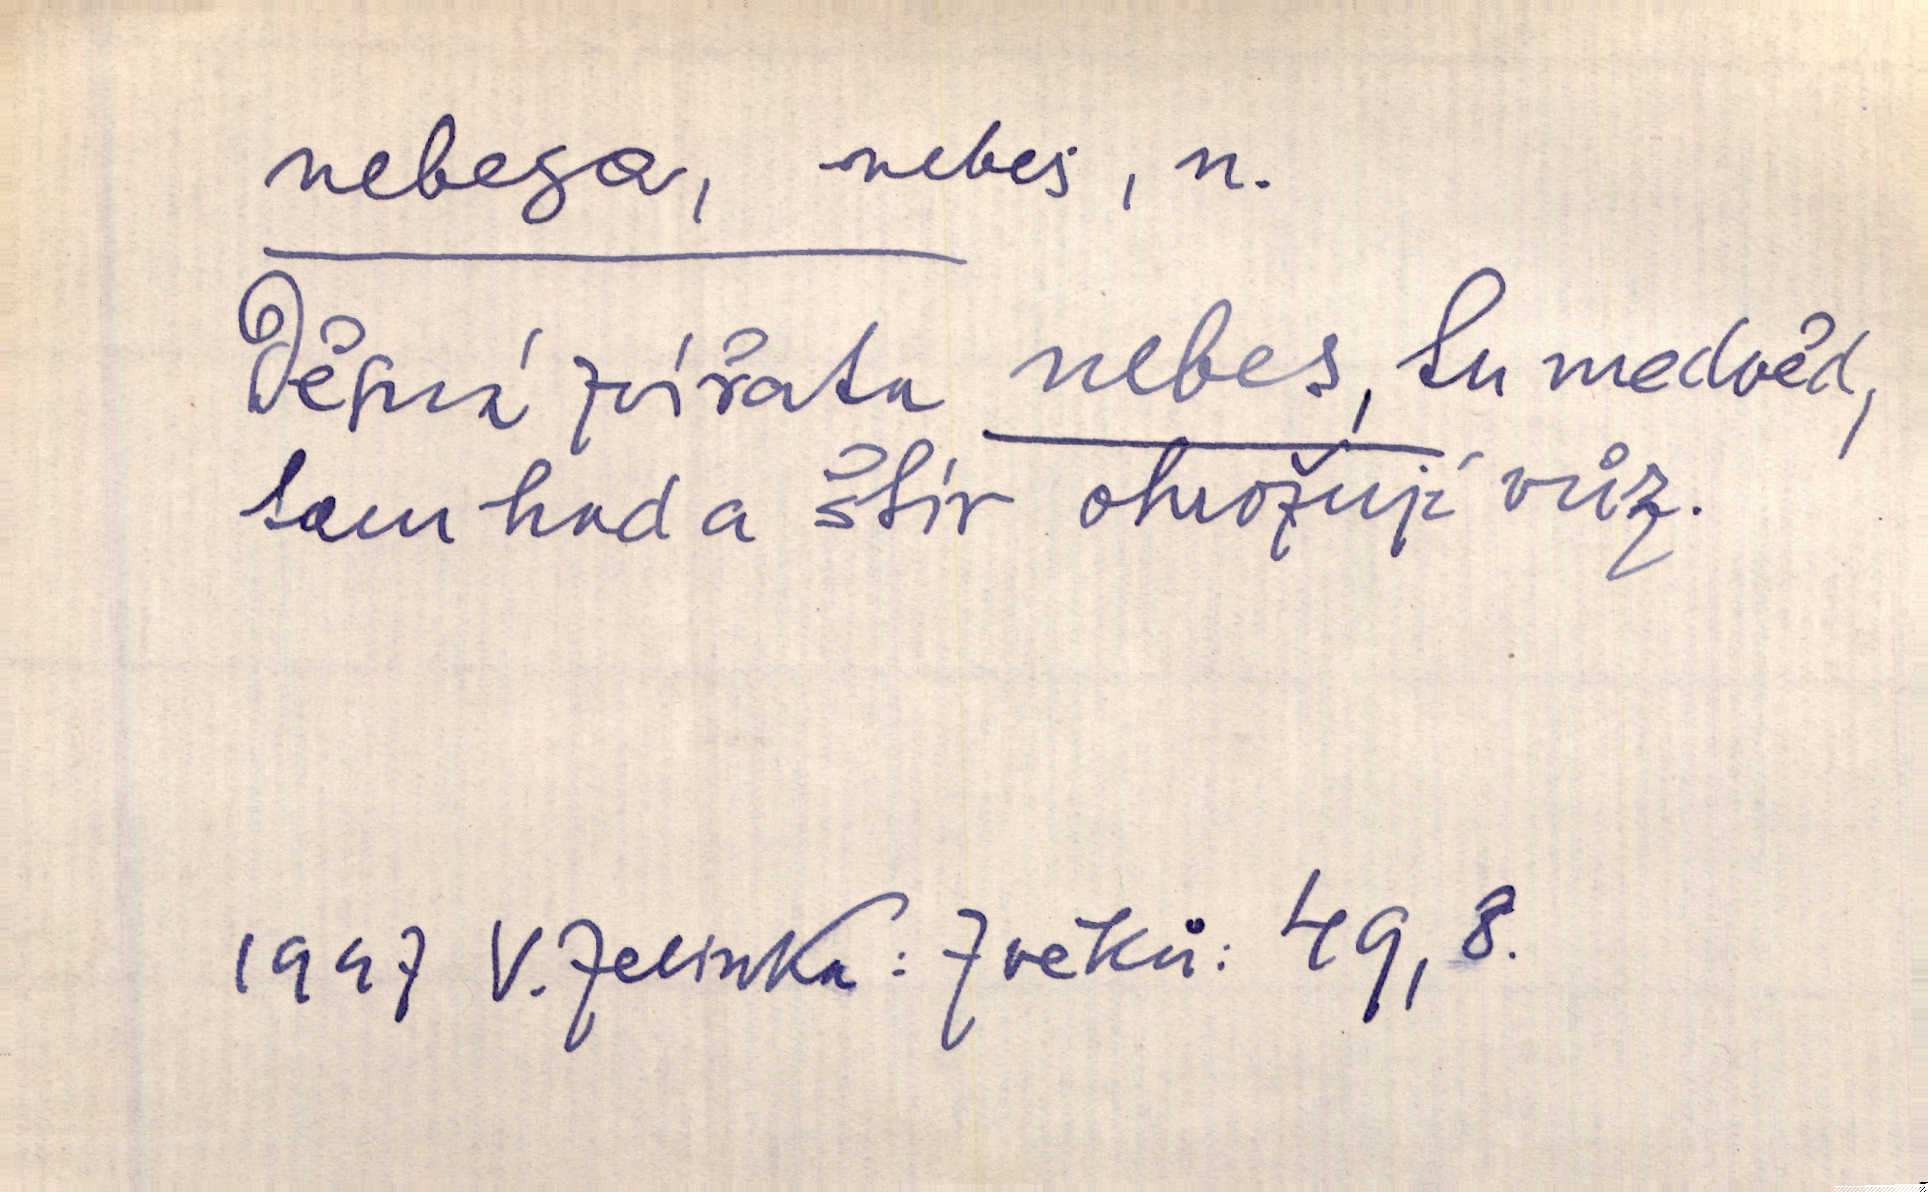 nebesa, nebes, n.
Děsná zvířata nebes, tu medvěd,
tam had a štír ohrožují vůz.
1997 V. Jelínka: Z věků: 49, 8.